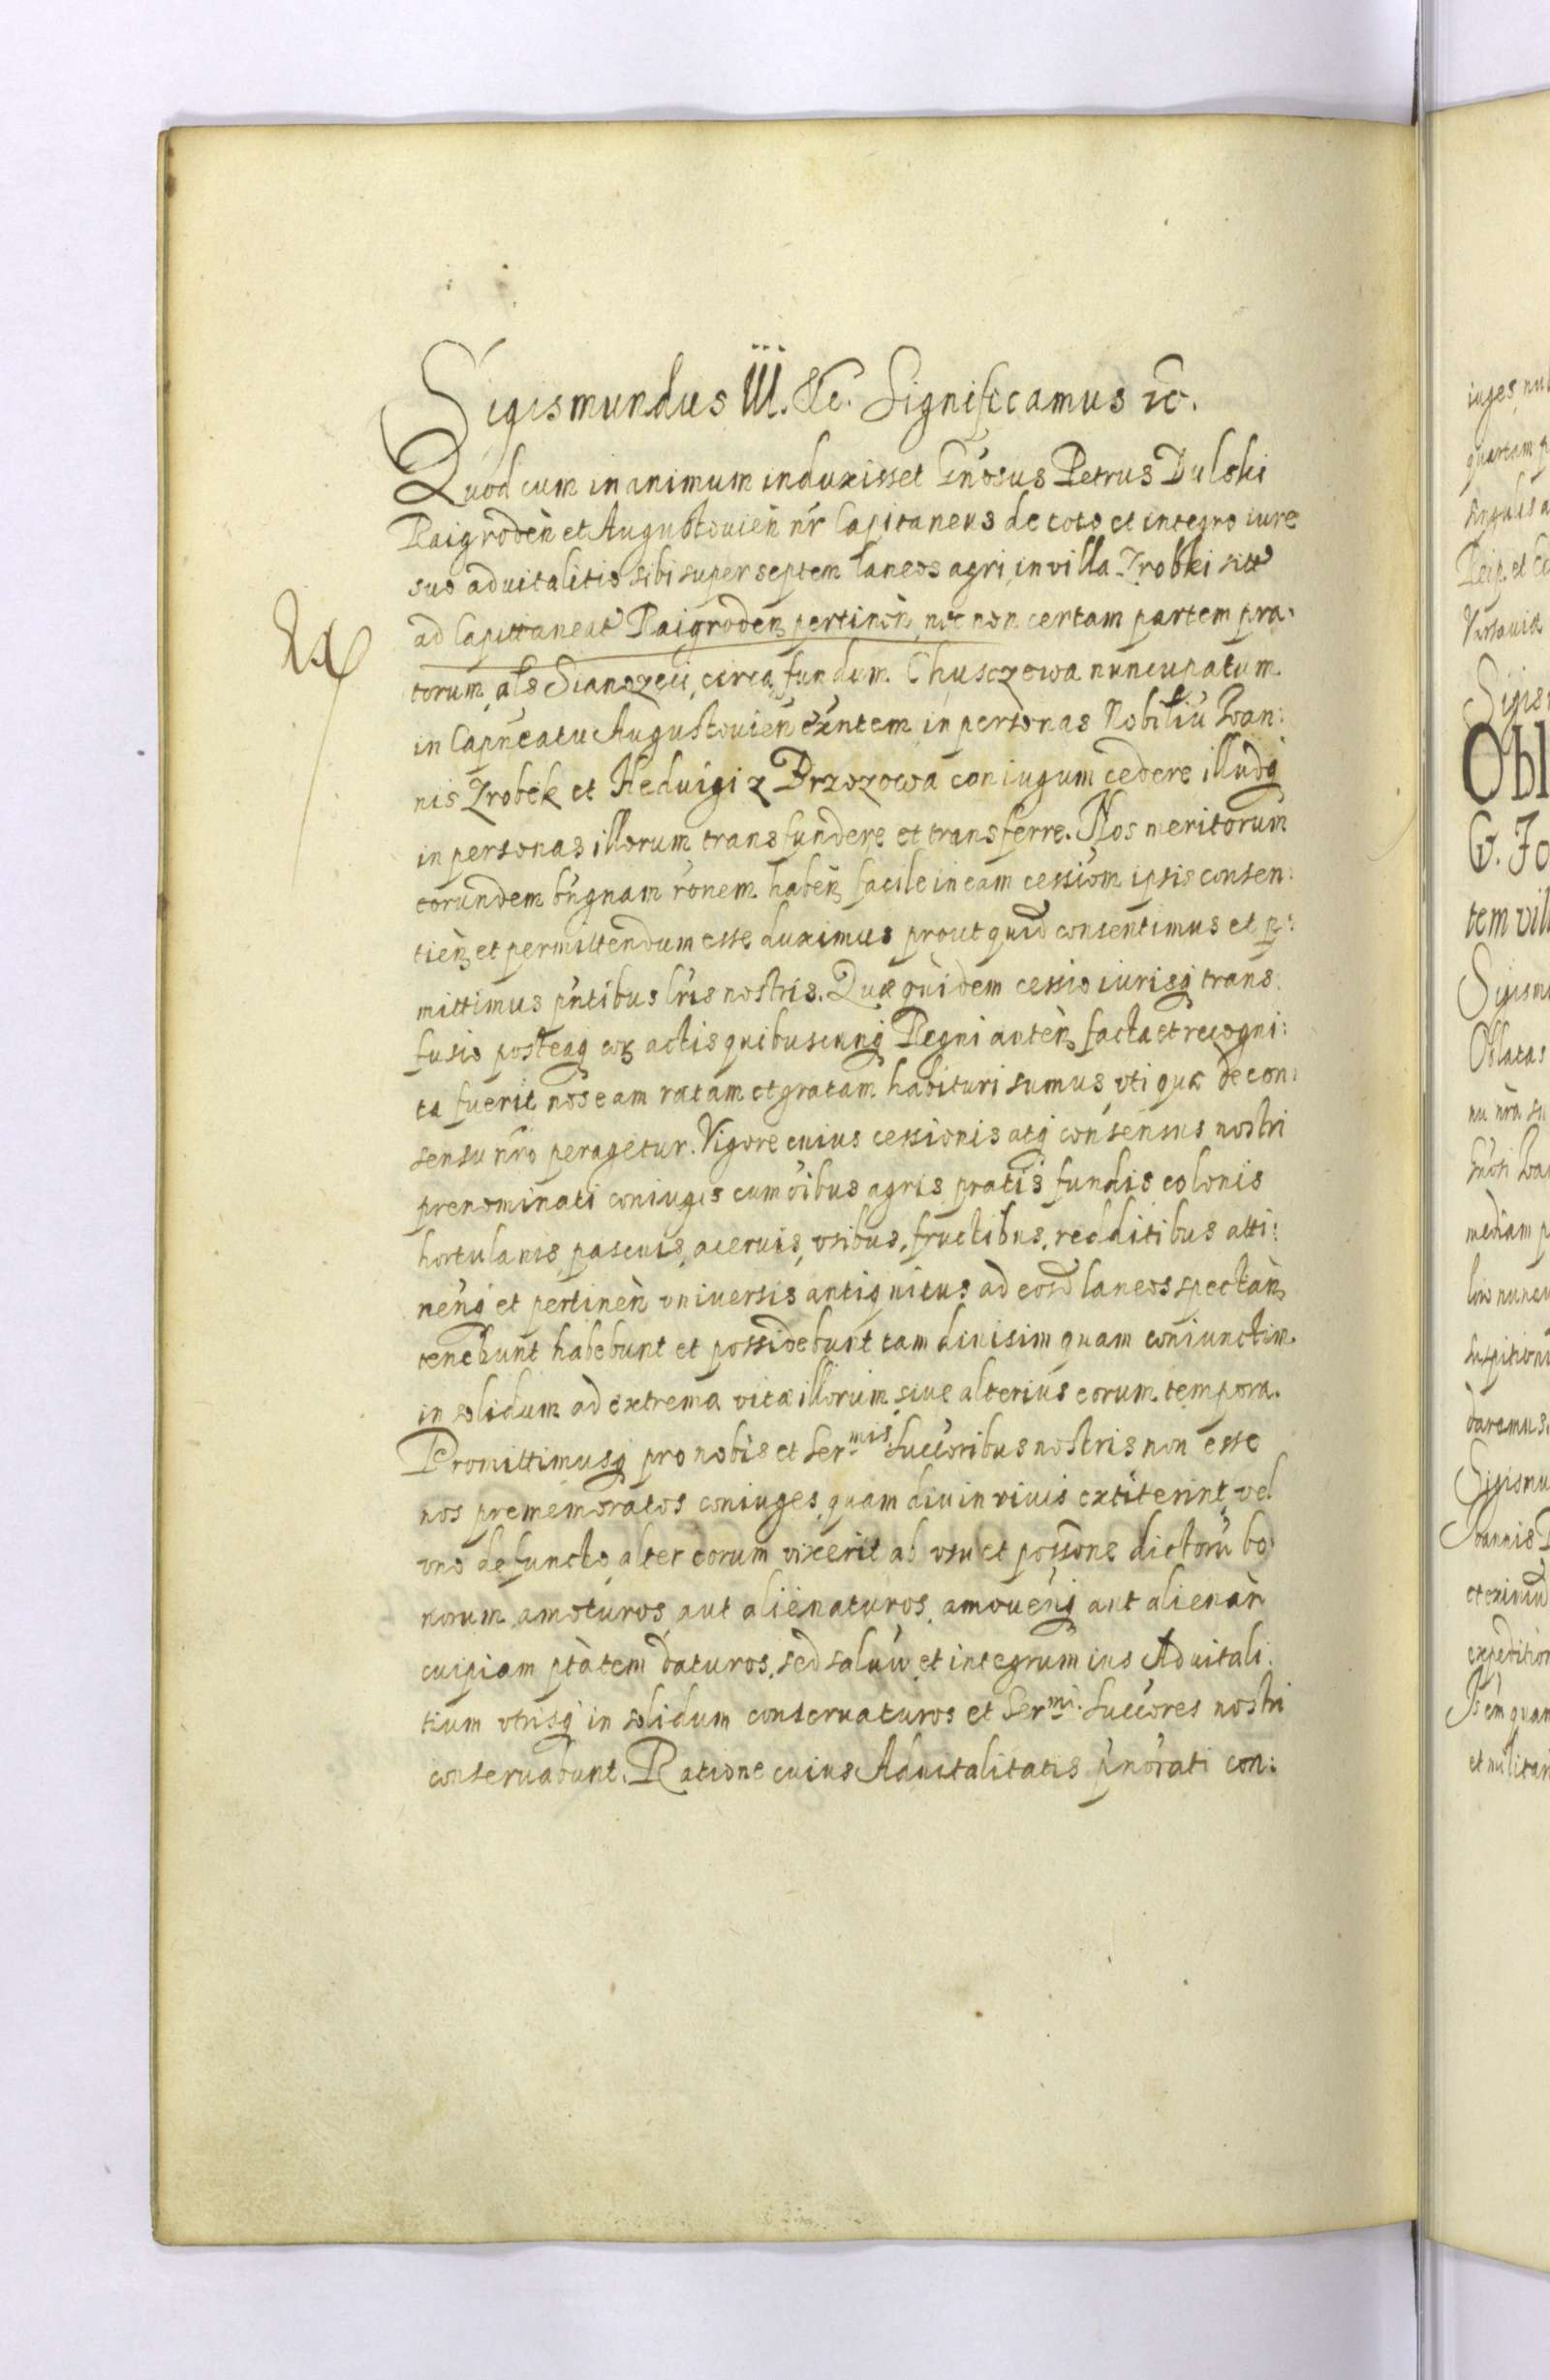 Sigismundus III. &c. Significamus &c.
Quod cum in animum induxisset Gnosus Petrus Dulski
Raigroden et Augustouien nr Capitaneus de toto et integro iure
suo aduitalitio sibi super septem laneos agri in villa Zrobki sitt
ad Capittaneat Raigroden pertinen, nec non certam partem pra-
torum, als Sianozeci, circa fundum Chusczowa nuncupatum
in Capneatu Augustouien exntem in personas Nobiliu Ioan:
nis Zrobek et Heduigi z Brzozowa coniugum cedere illudq
in personas illorum transfundere et transferre. Nos meritorum
eorundem bngnam ronem haben facile in eam cessiom ipsis consen:
tien et permittendum esse duximus prout quid consentimus et p:
mittimus pntibus lris nostris. Quae quidem cessio iurisq trans:
fusio posteaq cor actis quibuscunq Regni anten facta et recogni:
ta fuerit nos eam ratam et gratam habituri sumus, uti quae de con:
sensu nro peragetur. Vigore cuius cessionis atq consensus nostri
prenominati coniuges cum oibus agris pratis fundis colonis
hortulanis, pascuis, aceruis, usibus, fructibus, redditibus atti:
nenq et pertinen vniuersis antiquitus ad eosd laneos spectan
tenebunt habebunt et possidebunt tam diuisim quam coniunctim
in solidum ad extrema vitae illorum siue alterius eorum tempora.
Promittimusq pro nobis et Ser:mis Succoribus nostris non esse
nos prememoratos coniuges, quam diu in viuis extiterint, vel
vno defuncto alter eorum vixerit ab vsu et possone dictoru bo
norum amoturos aut alienaturos, amouenq aut alienan
cuipiam ptatem daturos, sed saluu et integrum ius Aduitali:
tium vtrisq in solidum conseruaturos et Ser:mi Succores nostri
conseruabunt. Ratione cuius Aduitalitatis pnorati con: